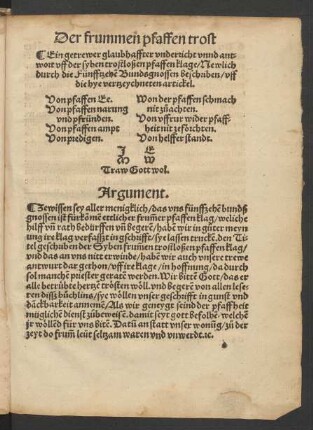 Der frummen pfaffen trost
¶ Ein getrewer glaubhaffter vnderricht vnnd ant-
wort vff der syben trostloßen pfaffen klage/ Newlich
durch die Fünffzehē Bundsgnossen beschriben/ vff
die hye verzeychneten artickel.
Von pfaffen Ee.
Von pfaffen narung
vnd pfründen.
Von pfaffen ampt
Von predigen.
Von der pfaffen schmach
nit zůachten.
Von vffrur wider pfaff-
heit nit zeförchten.
Von helffer standt.
J E
M W
Traw Gott wol.
Argument.
¶ Zewissen sey aller menigklich/ das vns fünffzehē bundß
gnossen ist fürkōmē ettlicher frum̄er pfaffen klag/ weliche
hilff vn̄ rath bedürffen vn̄ begerē/ habē wir in gůter mey
nung ire klag verfasszt in geschifft/ sye lassen truckē. den Ti-
tel geschriben der Syben frumen trostloßen pfaffen klag/
vnd das an vns nitt erwinde/ habē wir auch vnsere trewe
antwurt dar gethon/ vff ire klag/ in hoffnung/ da durch
sol manchē priester geratē werden. Wir bittē Gott/ das er
alle betrübte hertzē trösten wöll. vnd begerē von allen lese-
ren dißß bůchlins/ sye wöllen vnser geschifft in gunst vnd
dāckbarkeit annemē/ Als wir geneygt seind der pfaffheit
mögliche dienst zůbeweisē. damit seyt gott befolhē/ welchē
jr wöllēd für vns bittē. Datū an statt vnser wonūg/ zů der
zeyt do frum̄ leut seltzam waren vnd vnwerdt. ꝛc.